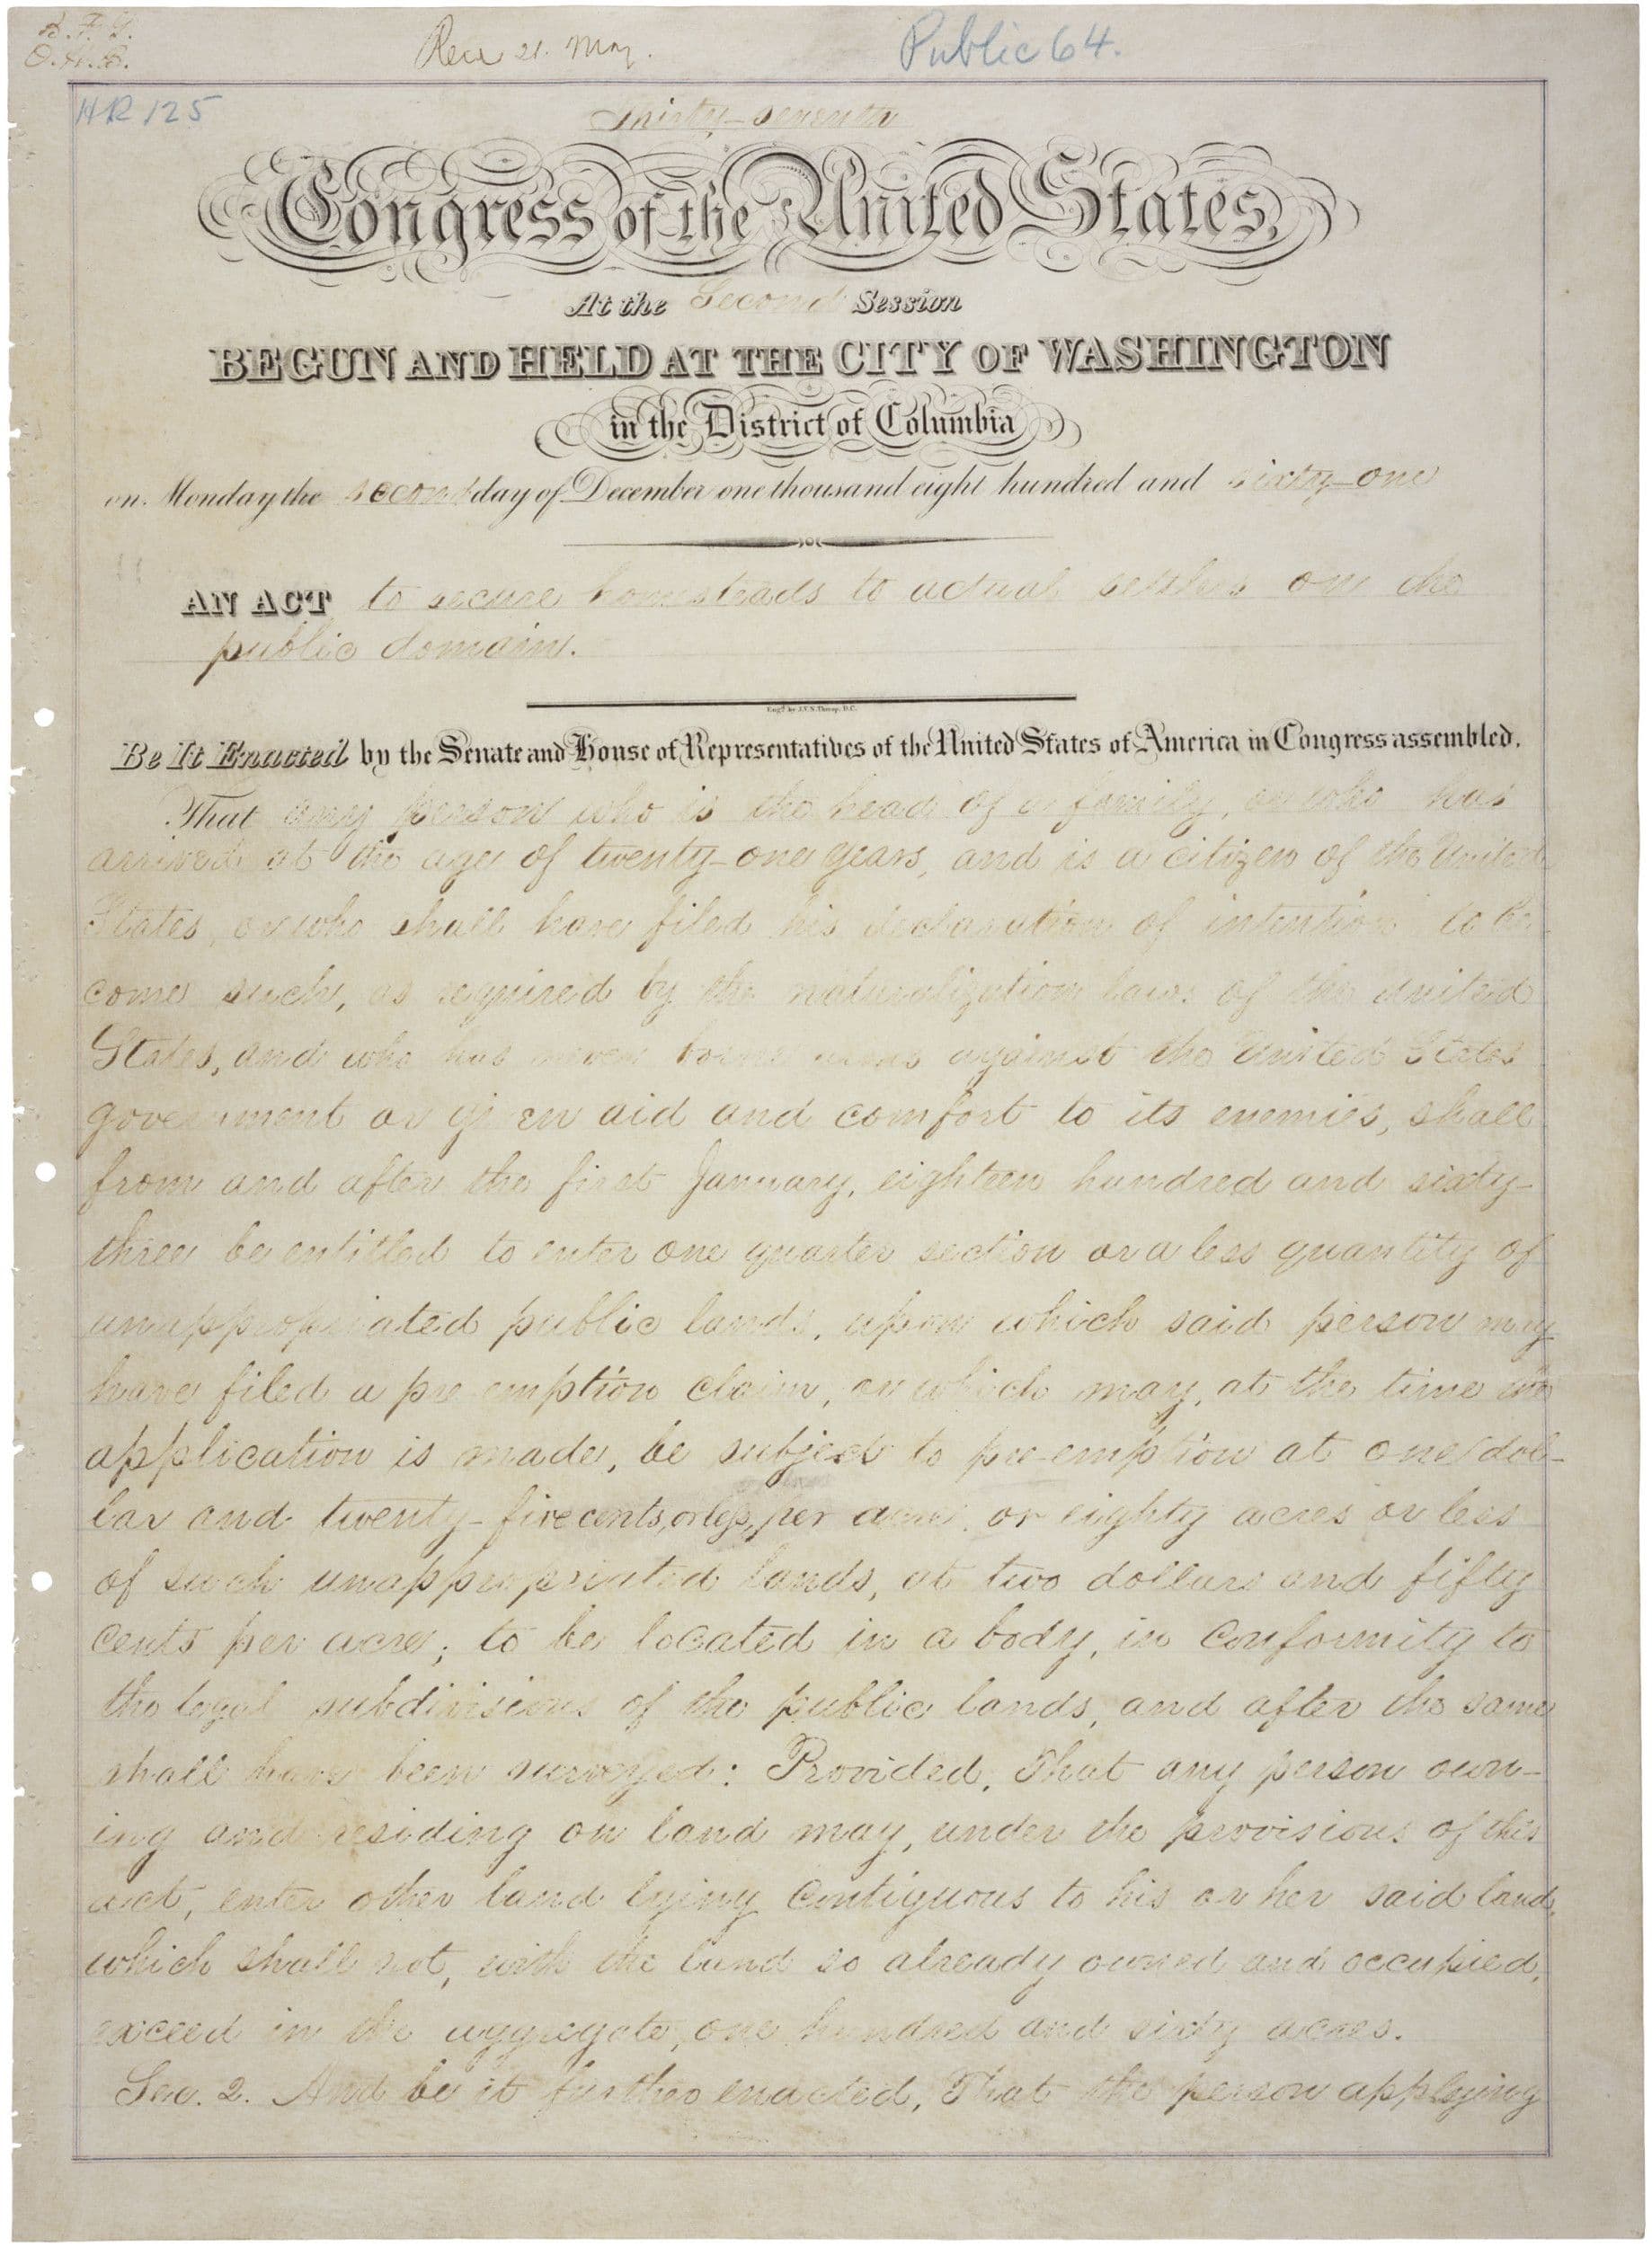 B. F. G.
O. H. B.
Rec 21. May.
Public 64.
HR 125
Thirty-seventh
Congress of the United States,
At the Second Session
BEGUN AND HELD AT THE CITY OF WASHINGTON
in the District of Columbia
on Monday the second day of December one thousand eight hundred and sixty-one
AN ACT to secure homesteads to actual settlers on the
public domain.
Eng'd by J.V.N. Throop, D.C.
Be It Enacted by the Senate and House of Representatives of the United States of America in Congress assembled,
That any person who is the head of a family, or who has
arrived at the age of twenty-one years, and is a citizen of the United
States, or who shall have filed his declaration of intention to be-
come such, as required by the naturalization laws of the United
States, and who has never borne arms against the United States
government or given aid and comfort to its enemies, shall
from and after the first January, eighteen hundred and sixty-
three be entitled to enter one quarter section or a less quantity of
unappropriated public lands, upon which said person may
have filed a pre emption claim, or which may, at the time the
application is made, be subject to pre-emption at one dol-
lar and twenty-five cents, or less, per acre; or eighty acres or less
of such unappropriated lands, at two dollars and fifty
cents per acre; to be located in a body, in conformity to
the legal subdivisions of the public lands, and after the same
shall have been surveyed: Provided, That any person own-
ing and residing on land may, under the provisions of this
act, enter other land lying contiguous to his or her said land,
which shall not, with the land so already owned and occupied,
exceed in the aggregate, one hundred and sixty acres.
Sec. 2. And be it further enacted, That the person applying